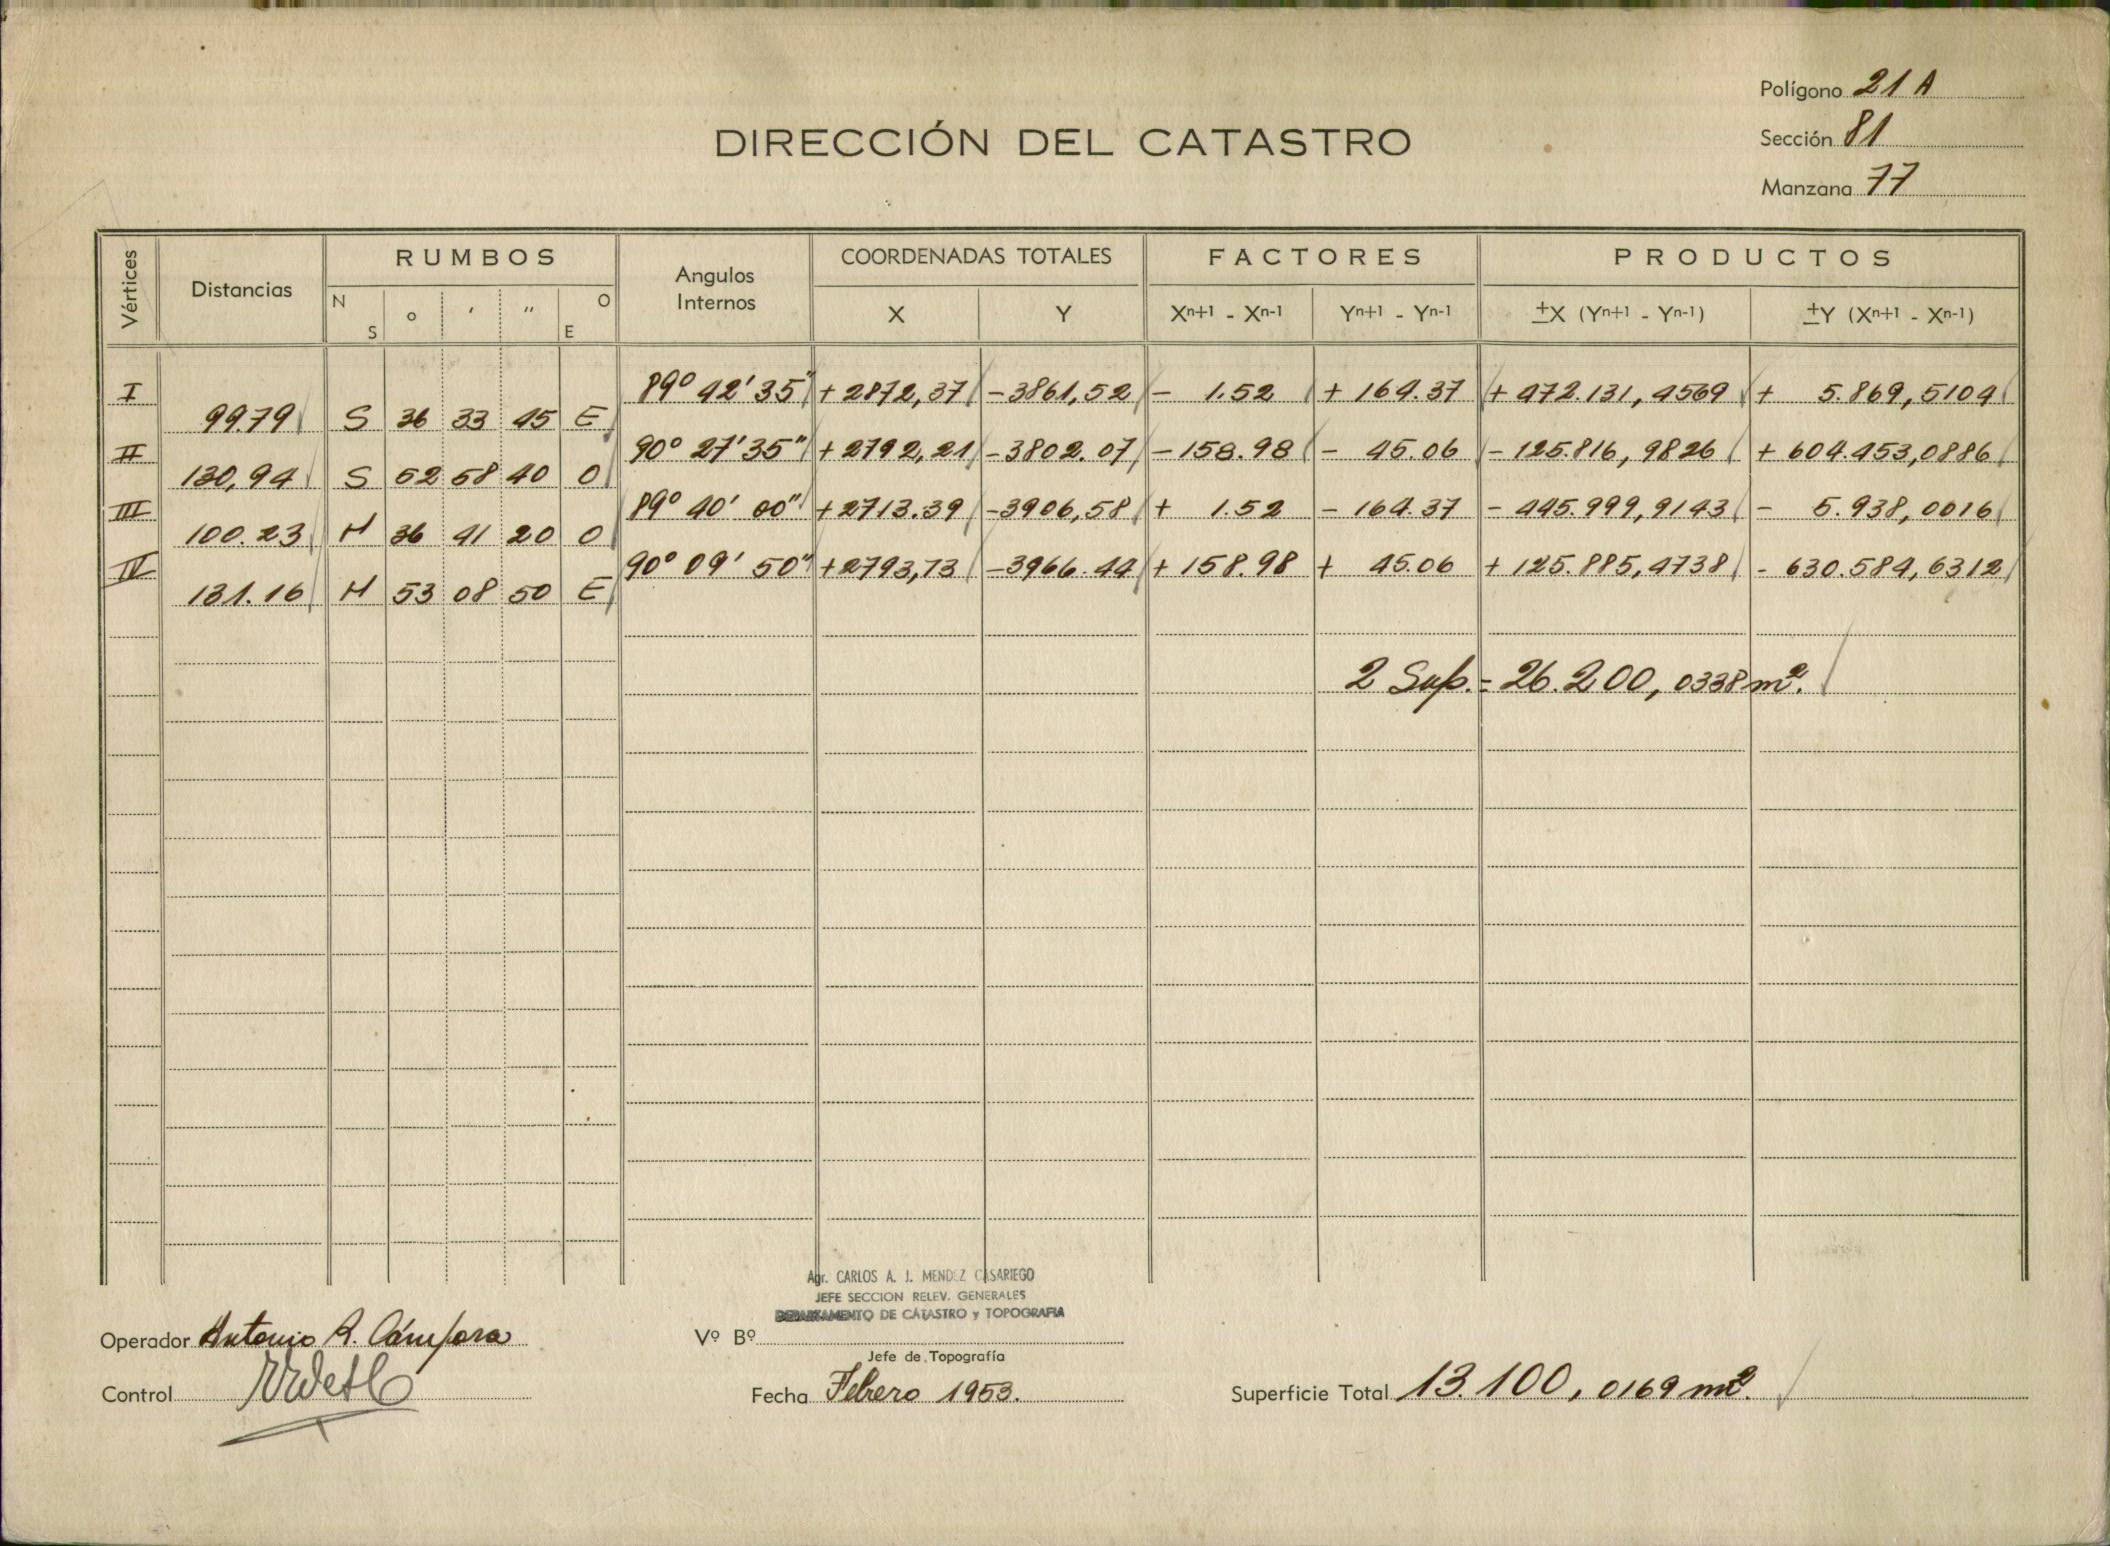 Polígono 21 A
DIRECCIÓN DEL CATASTRO
Sección 81
Manzana 77
Vértices Distancias RUMBOS Angulos Internos COORDENADAS TOTALES FACTORES PRODUCTOS
N S o ′ ″ O E X Y Xn+1 - Xn-1 Yn+1 - Yn-1 ±X (Yn+1 - Yn-1) ±Y (Xn+1 - Xn-1)
I 89° 42' 35" +2872,37 -3861,52 - 1.52 + 164.37 + 472.131,4569 + 5.869,5104
99.79 S 36 33 45 E
II 90° 27' 35" +2792,21 -3802.07 -158.98 - 45.06 - 125.816,9826 + 604.453,0886
130,94 S 52 58 40 O
III 89° 40' 00" +2713.39 -3906,58 + 1.52 - 164.37 - 445.999,9143 - 5.938,0016
100.23 N 36 41 20 O
IV 90° 09' 50" +2793,73 -3966.44 +158.98 + 45.06 + 125.885,4738 - 630.584,6312
131.16 N 53 08 50 E
2 Sup. = 26.200,0338 m².
Agr. CARLOS A. J. MENDEZ CASARIEGO
JEFE SECCION RELEV. GENERALES
DEPARTAMENTO DE CATASTRO y TOPOGRAFIA
Operador Antonio R. Cámpora
Vº Bº
Jefe de Topografía
Control
Fecha Febrero 1953.
Superficie Total 13.100,0169 m².